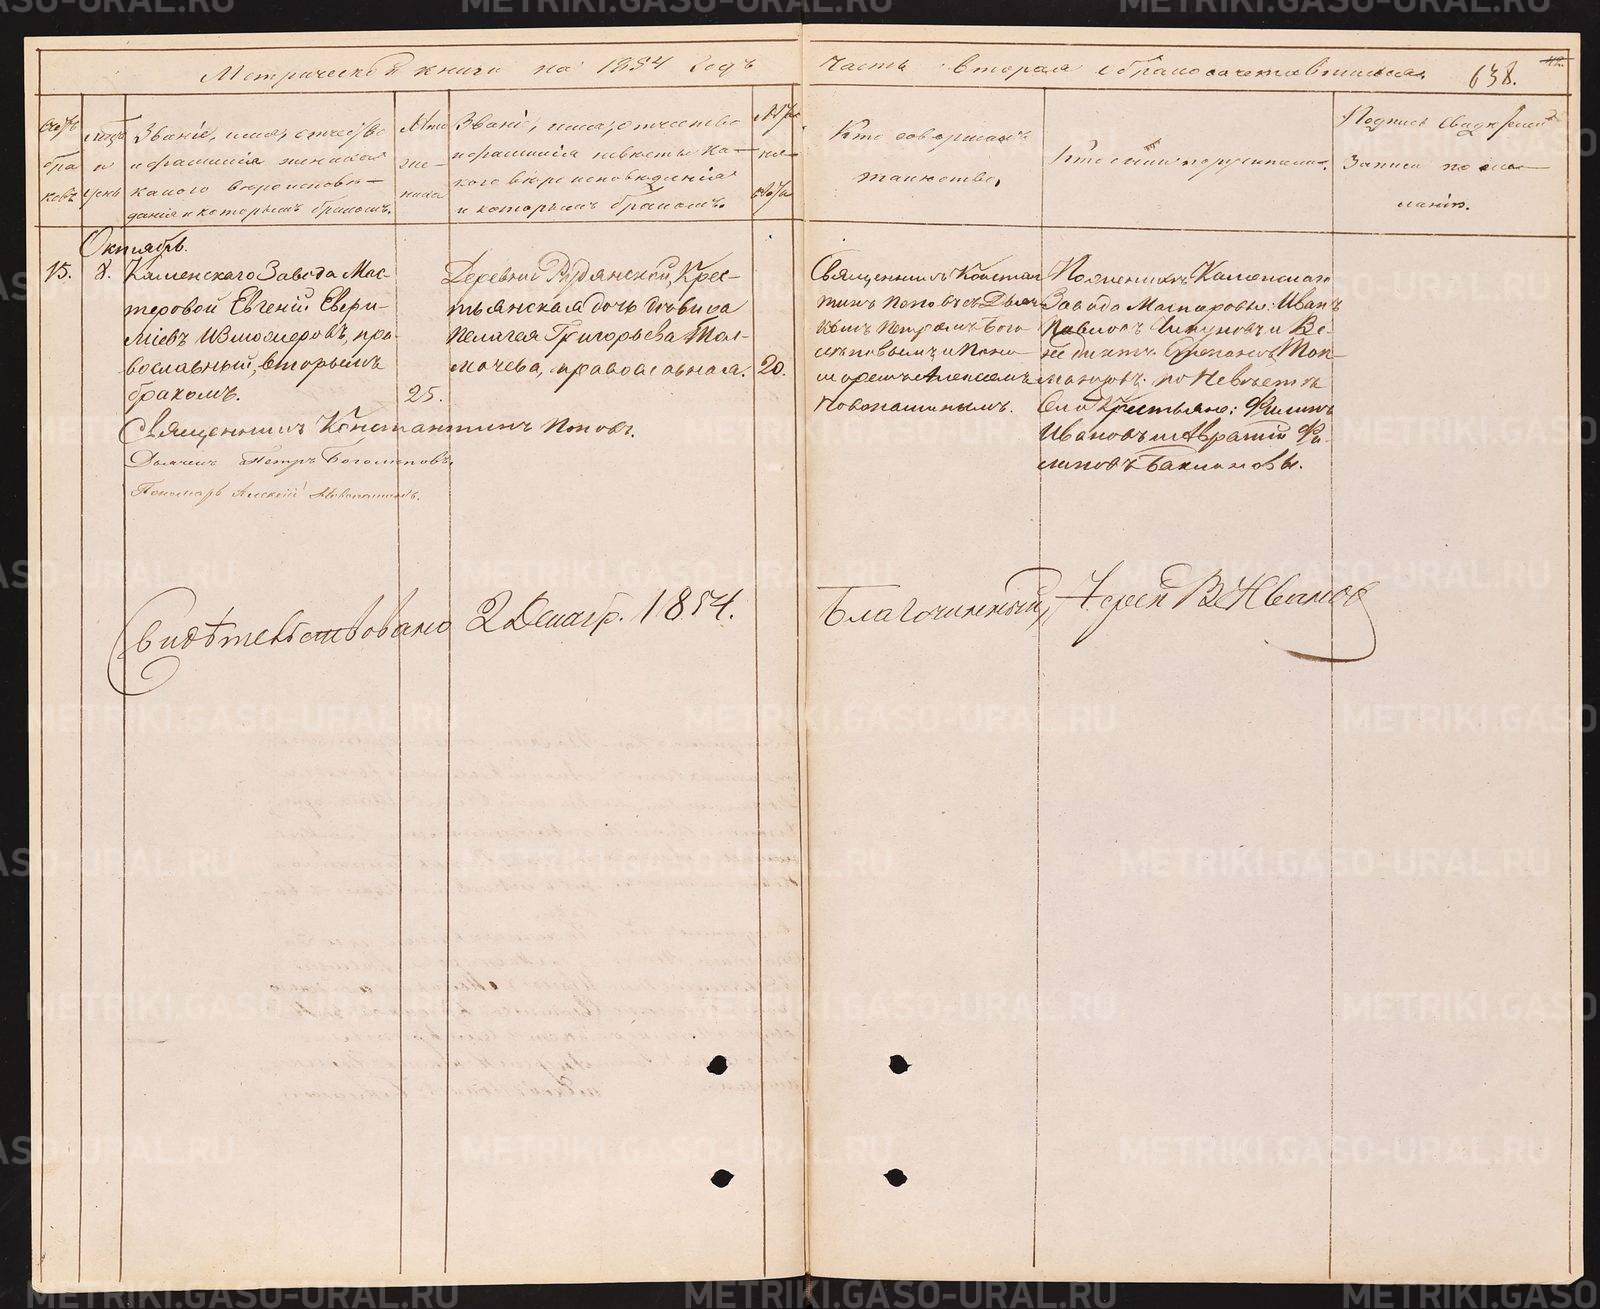 Метрической книги на 1854 годъ
часть вторая о бракосочетавшихся
638.
Счотъ браковъ
Мсцъ и день
Званіе, имя, отчество
и фамилія жениха
какого вѣроисповѣ-
данія и которымъ бракомъ.
Лѣта жениха
Званіе, имя, отчество
и фамилія невѣсты ка-
кого вѣроисповѣданія
и которымъ бракомъ.
Лѣта невѣсты
Кто совершалъ
таинство,
Кто были поручители.
Подпись свидѣтелей
записи по же-
ланію.
Октябрь.
15.
8.
Каменскаго Завода Мас-
теровой Евгеній
православный, вторымъ
бракомъ.
25.
Деревни Рудянской, Крес-
тьянская дочь дѣвица
Пелагея Григорьева Тол-
мачева, православная.
20.
Священникъ Констан-
тинъ Поповъ съ Дьяч-
комъ Петромъ Бого-
лѣповымъ и Поно-
маремъ Алексѣемъ
Новопашинымъ.
По женихѣ Каменскаго
Завода Мастеровые: Иванъ
Павловъ и Ве-
недиктъ Степановъ
по Невѣстѣ
Крестьяне: Филипъ
Ивановъ и Авраамій Фи-
липовъ Баклановы.
Священникъ Константинъ Поповъ.
Дьячекъ Петръ Боголѣповъ.
Пономарь Алексій Новопашинъ.
Свидѣтельствовано 2 Декабр. 1854.
Благочинный, Іерей В Ивановъ
METRIKI.GASO-URAL.RU